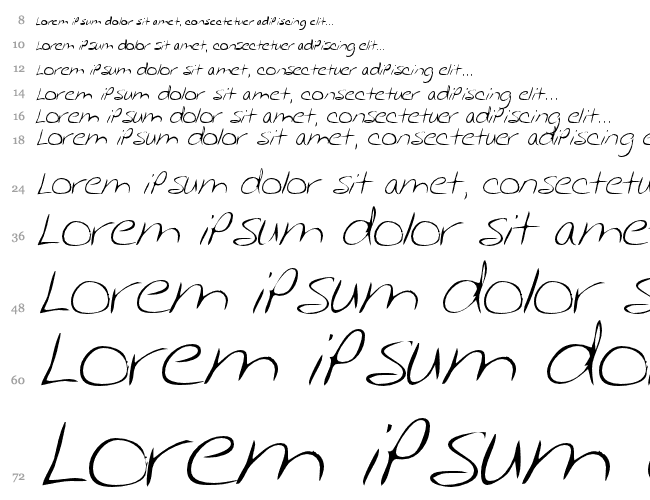 8 Lorem ipsum dolor sit amet, consectetuer adipiscing elit...
10 Lorem ipsum dolor sit amet, consectetuer adipiscing elit...
12 Lorem ipsum dolor sit amet, consectetuer adipiscing elit...
14 Lorem ipsum dolor sit amet, consectetuer adipiscing elit...
16 Lorem ipsum dolor sit amet, consectetuer adipiscing elit...
18 Lorem ipsum dolor sit amet, consectetuer adipiscing e
24 Lorem ipsum dolor sit amet, consectetu
36 Lorem ipsum dolor sit ame
48 Lorem ipsum dolor s
60 Lorem ipsum dol
72 Lorem ipsum